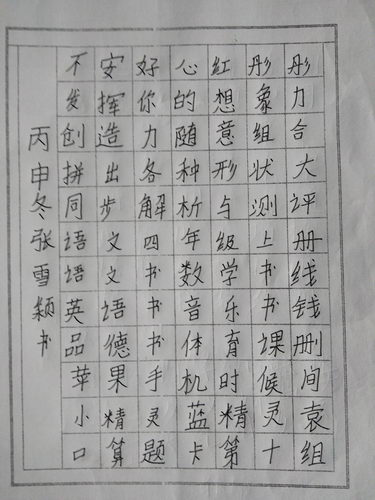 不安好心红彤彤
发挥你的想象力
创造力随意组合
拼出各种形状大
同步解析与测评
语文四年级上册
语文书数学书线
英语书音乐书钱
品德书体育课删
苹果手机时候间
小精灵蓝精灵袁
口算题卡第十组
丙申冬张雪颖书